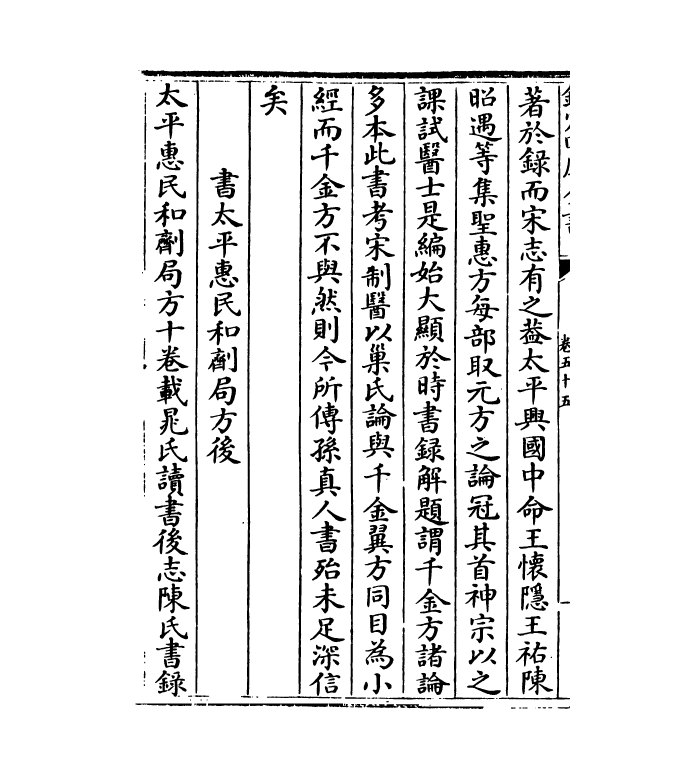 卷五十五
著於錄而宋志有之葢太平興國中命王懷隱王祐陳
昭遇等集聖惠方每部取元方之論冠其首神宗以之
課試醫士是編始大顯於時書錄解題謂千金方諸論
多本此書考宋制醫以巢氏論與千金翼方同目為小
經而千金方不與然則今所傳孫真人書殆未足深信
矣
書太平惠民和劑局方後
太平惠民和劑局方十卷載晁氏讀書後志陳氏書錄